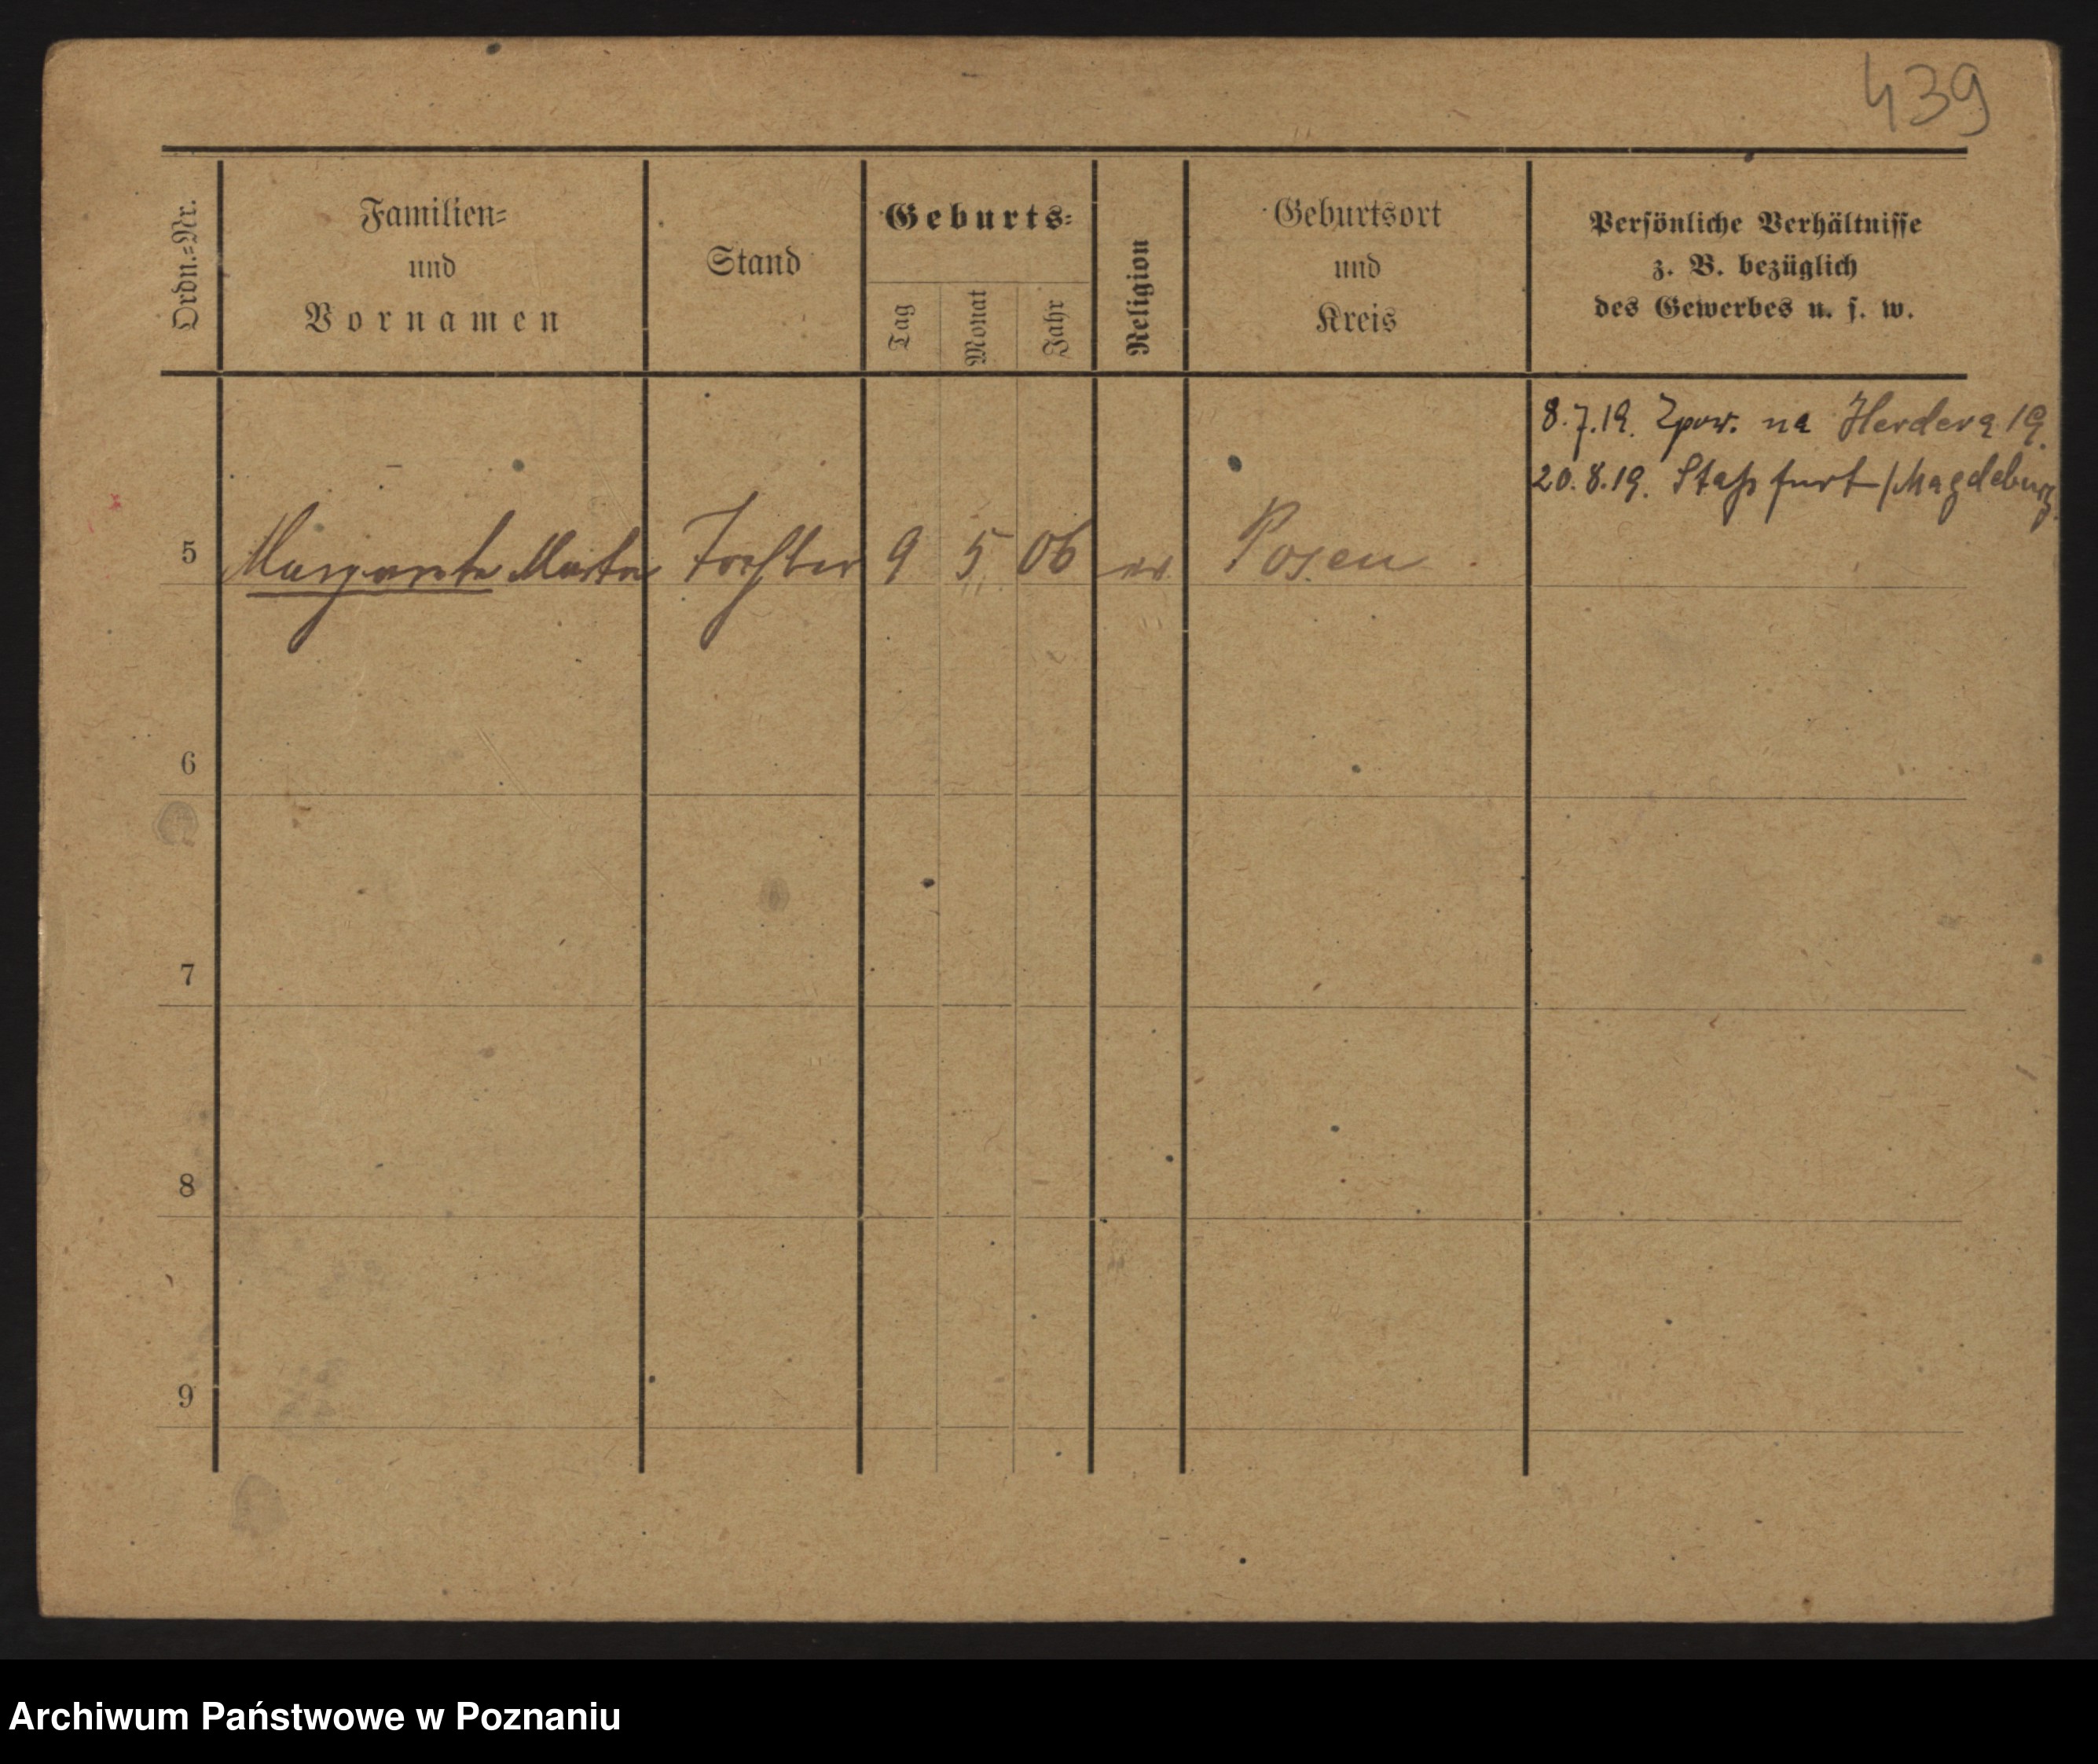 439
Ordn.=Nr.
Familien=
und
Vornamen
Stand
Geburts=
Tag
Monat
Jahr
Religion
Geburtsort
und
Kreis
Persönliche Verhältnisse
z. B. bezüglich
des Gewerbes u. s. w.
8.7.19. Zpow. na Herdera 19.
20.8.19. Staßfurt/Magdeburg.
5 Margarete Marta Tochter 9 5 06 ev Posen
6
7
8
9
Archiwum Państwowe w Poznaniu